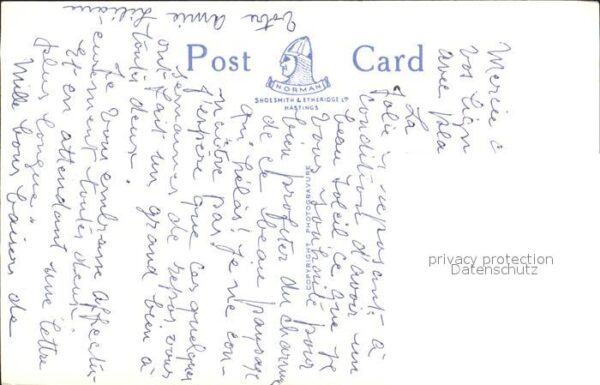 Post Card
NORMAN
SHOESMITH & ETHERIDGE LTD
HASTINGS
COPYRIGHT PHOTOGRAVURE
Merci à
vos lign
avec pla
La
jolie, reposant à
condition d'avoir un
beau soleil ce que je
vous souhaite pour
bien profiter du charme
de ce beau paysage
qu', hélas! je ne con-
naitre pas
J'espère que ces quelques
semaines de repos vous
ont fait un grand bien à
toutes deux.
Je vous embrasse affectu-
eusement toutes deux
Et en attendant une lettre
plus longue
Mille bons baisers de
Votre amie
Liliane
privacy protection
Datenschutz